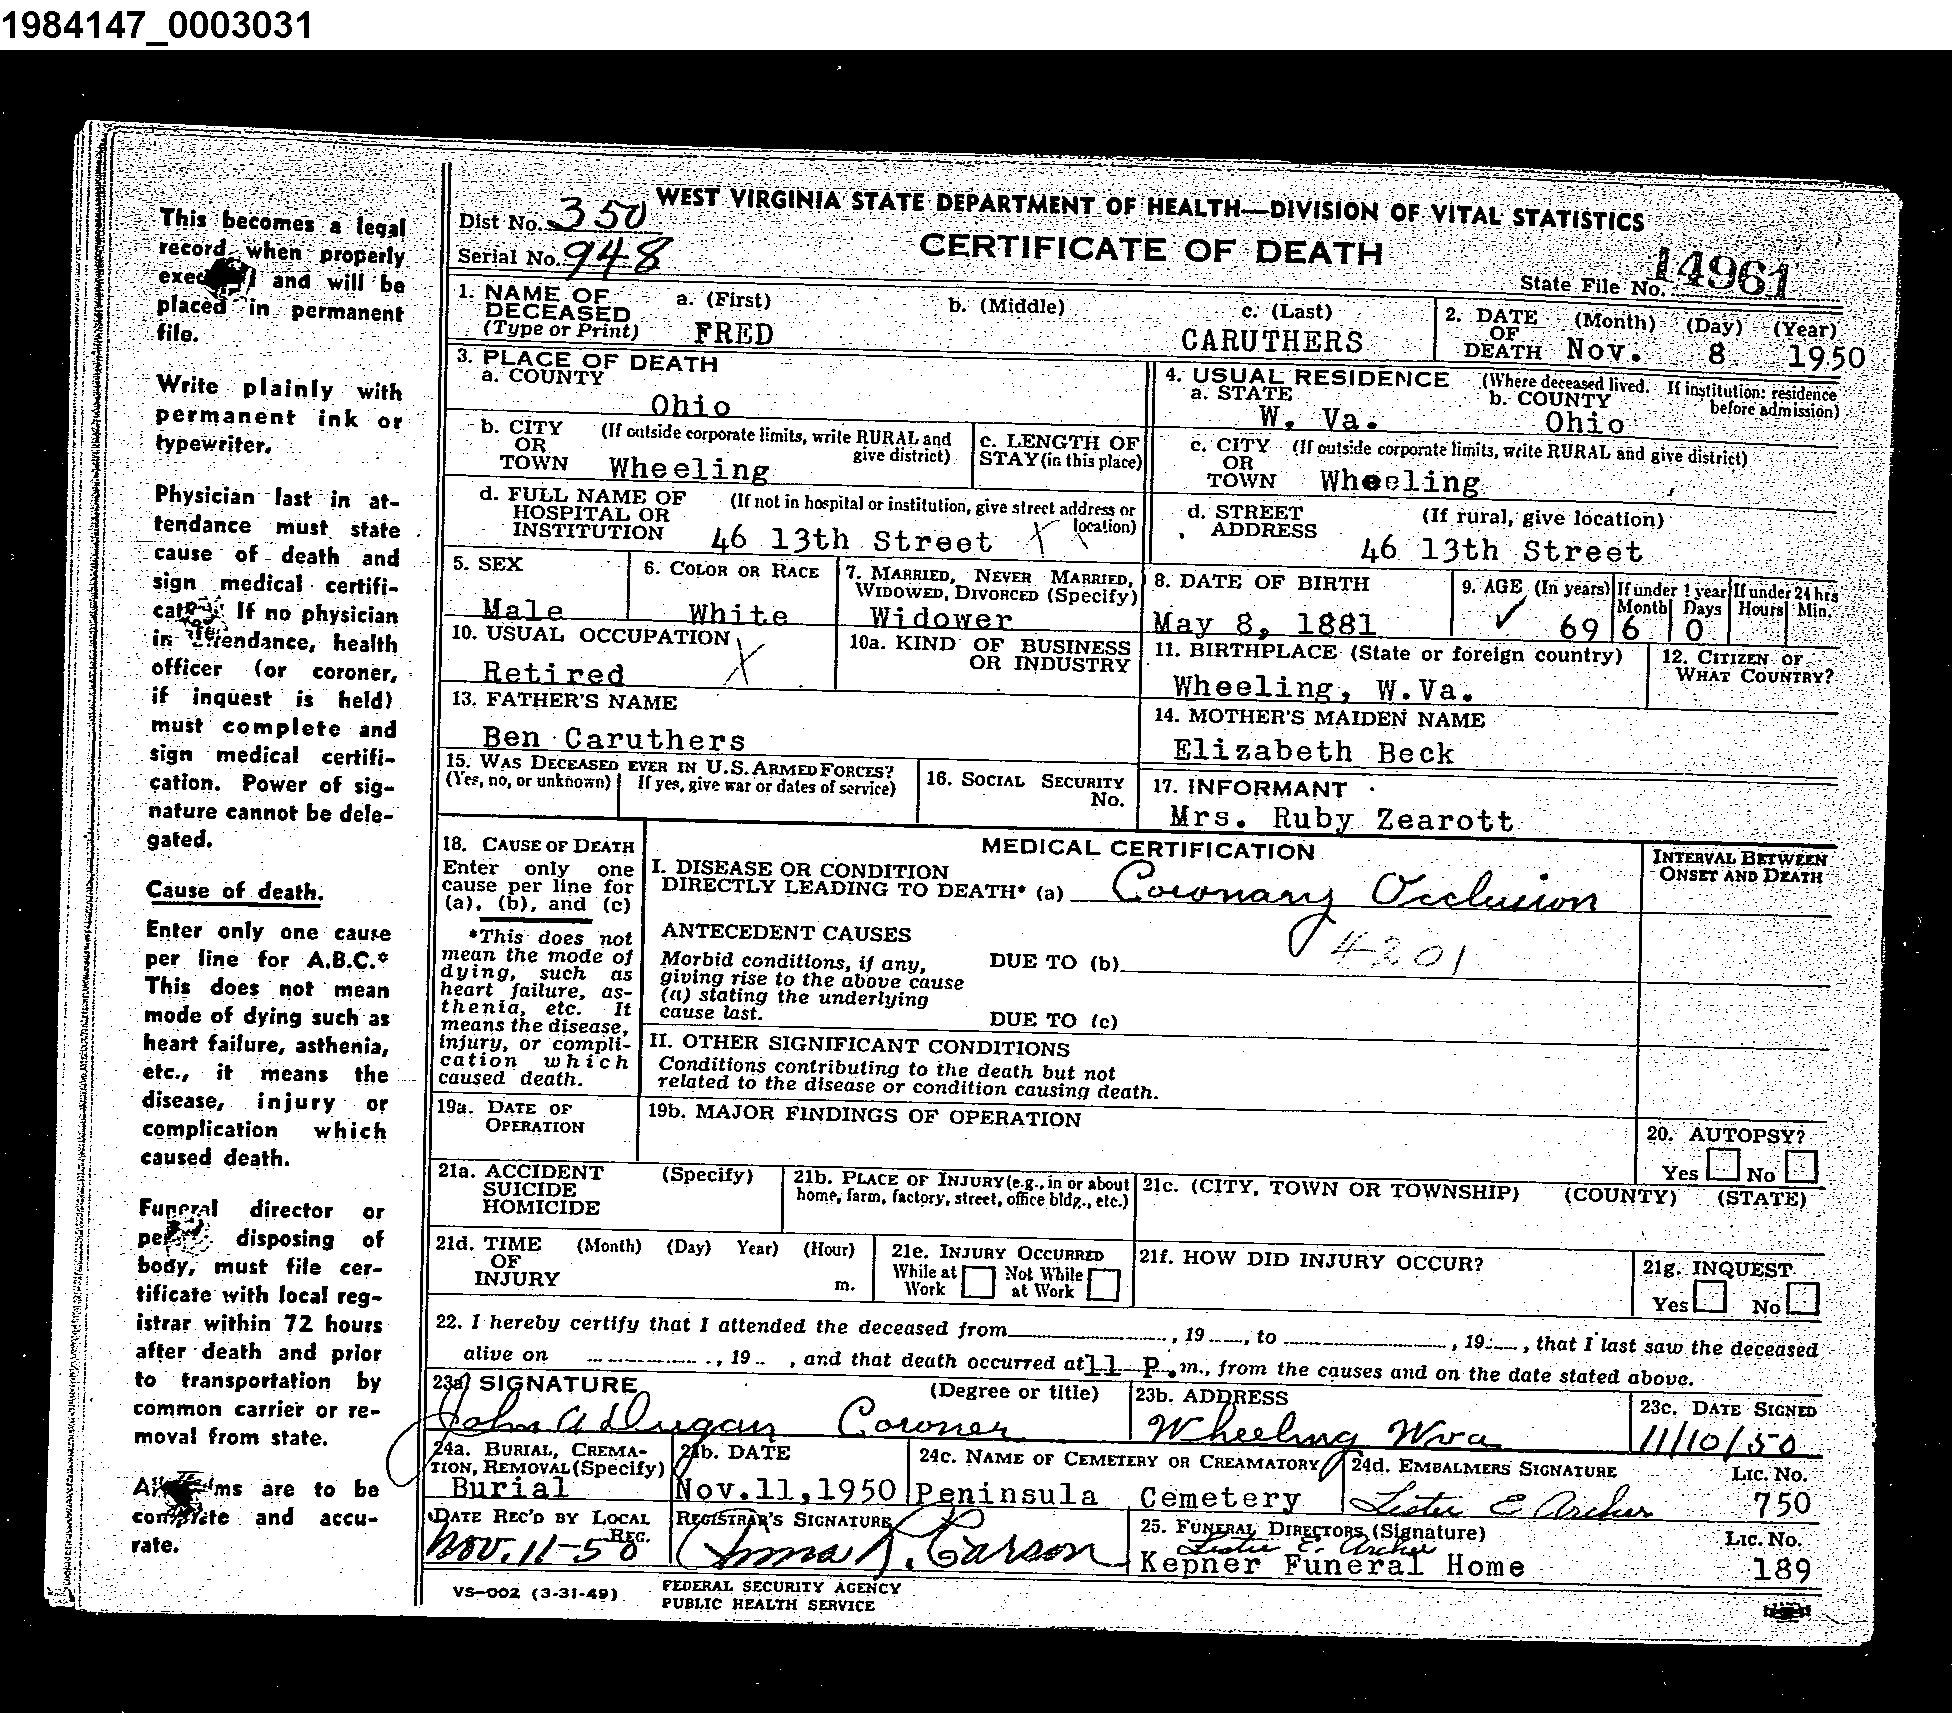 1984147_0003031
This becomes a legal
record when properly
and will be
placed in permanent
file.
Write plainly with
permanent ink or
typewriter.
Physician last in at-
tendance must state
cause of death and
sign medical certifi-
If no physician
in attendance, health
officer (or coroner,
if inquest is held)
must complete and
sign medical certifi-
cation. Power of sig-
nature cannot be dele-
gated.
Cause of death.
Enter only one cause
per line for A.B.C.*
This does not mean
mode of dying such as
heart failure, asthenia,
etc., it means the
disease, injury or
complication which
caused death.
Funeral director or
disposing of
body, must file cer-
tificate with local reg-
istrar within 72 hours
after death and prior
to transportation by
common carrier or re-
moval from state.
are to be
complete and accu-
rate.
WEST VIRGINIA STATE DEPARTMENT OF HEALTH—DIVISION OF VITAL STATISTICS
Dist No. 350
CERTIFICATE OF DEATH
Serial No. 948
State File No. 14961
1. NAME OF DECEASED (Type or Print) a. (First) FRED b. (Middle) c. (Last) CARUTHERS
2. DATE OF DEATH (Month) (Day) (Year) Nov. 8 1950
3. PLACE OF DEATH
a. COUNTY Ohio
4. USUAL RESIDENCE (Where deceased lived. If institution: residence before admission)
a. STATE W. Va. b. COUNTY Ohio
b. CITY OR TOWN (If outside corporate limits, write RURAL and give district) Wheeling
c. LENGTH OF STAY (in this place)
c. CITY OR TOWN (If outside corporate limits, write RURAL and give district) Wheeling
d. FULL NAME OF HOSPITAL OR INSTITUTION (If not in hospital or institution, give street address or location) 46 13th Street X X
d. STREET ADDRESS (If rural, give location) 46 13th Street
5. SEX Male
6. COLOR OR RACE White
7. MARRIED, NEVER MARRIED, WIDOWED, DIVORCED (Specify) Widower
8. DATE OF BIRTH May 8, 1881
9. AGE (In years) ✓ 69 If under 1 year Month 6 Days 0 If under 24 hrs Hours Min.
10. USUAL OCCUPATION Retired X
10a. KIND OF BUSINESS OR INDUSTRY
11. BIRTHPLACE (State or foreign country) Wheeling, W.Va.
12. CITIZEN OF WHAT COUNTRY?
13. FATHER'S NAME Ben Caruthers
14. MOTHER'S MAIDEN NAME Elizabeth Beck
15. WAS DECEASED EVER IN U.S. ARMED FORCES?
(Yes, no, or unknown) If yes, give war or dates of service)
16. SOCIAL SECURITY No.
17. INFORMANT Mrs. Ruby Zearott
18. CAUSE OF DEATH
Enter only one
cause per line for
(a), (b), and (c)
*This does not
mean the mode of
dying, such as
heart failure, as-
thenia, etc. It
means the disease,
injury, or compli-
cation which
caused death.
MEDICAL CERTIFICATION
I. DISEASE OR CONDITION
DIRECTLY LEADING TO DEATH* (a) Coronary Occlusion
INTERVAL BETWEEN ONSET AND DEATH
4201
ANTECEDENT CAUSES
Morbid conditions, if any, DUE TO (b)
giving rise to the above cause
(a) stating the underlying
cause last. DUE TO (c)
II. OTHER SIGNIFICANT CONDITIONS
Conditions contributing to the death but not
related to the disease or condition causing death.
19a. DATE OF OPERATION
19b. MAJOR FINDINGS OF OPERATION
20. AUTOPSY?
Yes No
21a. ACCIDENT SUICIDE HOMICIDE (Specify)
21b. PLACE OF INJURY (e.g., in or about home, farm, factory, street, office bldg., etc.)
21c. (CITY, TOWN OR TOWNSHIP) (COUNTY) (STATE)
21d. TIME OF INJURY (Month) (Day) Year) (Hour) m.
21e. INJURY OCCURRED While at Work Not While at Work
21f. HOW DID INJURY OCCUR?
21g. INQUEST Yes No
22. I hereby certify that I attended the deceased from , 19 , to , 19 , that I last saw the deceased
alive on , 19 , and that death occurred at 11 P. m., from the causes and on the date stated above.
23a. SIGNATURE (Degree or title) John A Dugan Coroner
23b. ADDRESS Wheeling Wva
23c. DATE SIGNED 11/10/50
24a. BURIAL, CREMATION, REMOVAL (Specify) Burial
24b. DATE Nov.11,1950
24c. NAME OF CEMETERY OR CREAMATORY Peninsula Cemetery
24d. EMBALMERS SIGNATURE Lester E Archer Lic. No. 750
DATE REC'D BY LOCAL REG. Nov. 11-50
REGISTRAR'S SIGNATURE Carson
25. FUNERAL DIRECTORS (Signature) Lester E. Archer Kepner Funeral Home Lic. No. 189
VS-002 (3-31-49)
FEDERAL SECURITY AGENCY
PUBLIC HEALTH SERVICE